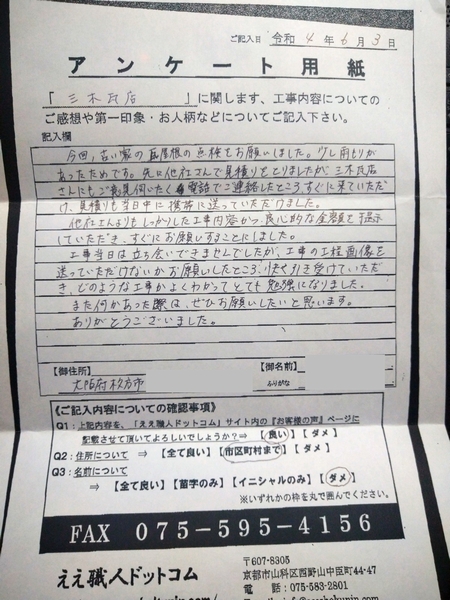 ご記入日 令和 4 年 6 月 3 日
アンケート用紙
「 三木瓦店 」に関します、工事内容についての
ご感想や第一印象・お人柄などについてご記入下さい。
記入欄
今回、古い家の瓦屋根の点検をお願いしました。少し雨もりが
あったためです。先に他社さんで見積りをとりましたが、三木瓦店
さんにもご意見伺いたく電話でご連絡したところ、すぐに来ていただ
け、見積りも当日中に携帯に送っていただけました。
他社さんよりもしっかりした工事内容かつ、良心的な金額を提示
していただき、すぐにお願いすることにしました。
工事当日は立ち会いできませんでしたが、工事の工程画像を
送っていただけないかお願いしたところ、快く引き受けていただ
き、どのような工事かよくわかってとても勉強になりました。
また何かあった際は、ぜひお願いしたいと思います。
ありがとうございました。
【御住所】 【御名前】
大阪府枚方市 ふりがな
《ご記入内容についての確認事項》
Q1：上記内容を、「ええ職人ドットコム」サイト内の『お客様の声』ページに
記載させて頂いてよろしいでしょうか？⇒ 【良い】 【ダメ】
Q2：住所について ⇒ 【全て良い】【市区町村まで】【ダメ】
Q3：名前について
⇒ 【全て良い】【苗字のみ】【イニシャルのみ】【ダメ】
※いずれかの枠を丸で囲んでください。
FAX 075-595-4156
ええ職人ドットコム
〒607-8305
京都市山科区西野山中臣町44-47
電話 075-583-2801